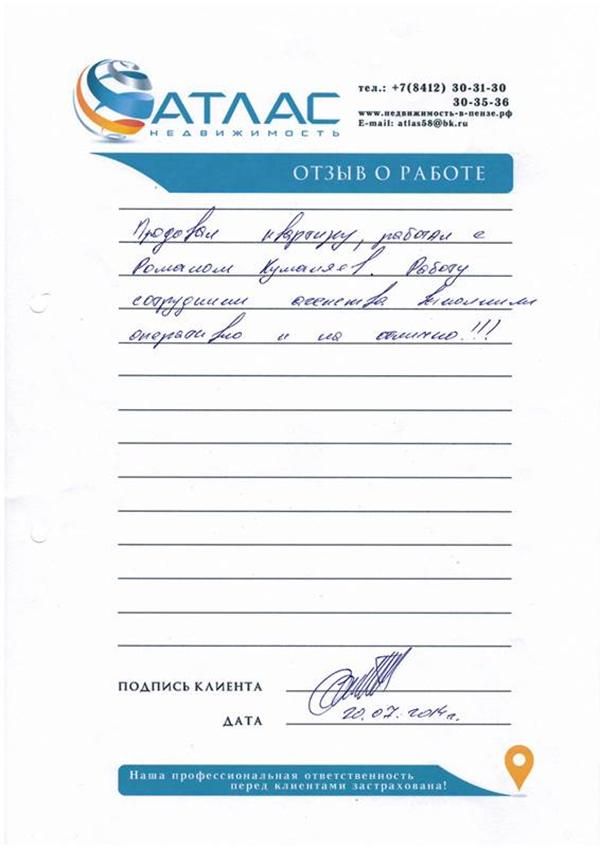 АТЛАС
НЕДВИЖИМОСТЬ
тел.: +7(8412) 30-31-30
30-35-36
www.недвижимость-в-пензе.рф
E-mail: atlas58@bk.ru
ОТЗЫВ О РАБОТЕ
Продовал квартиру, работал с
Романом Кумаляев. Работу
сотрудники агенства выполнили
оперативно и на отлично!!!
ПОДПИСЬ КЛИЕНТА
ДАТА
20.07.2014г.
Наша профессиональная ответственность
перед клиентами застрахована!